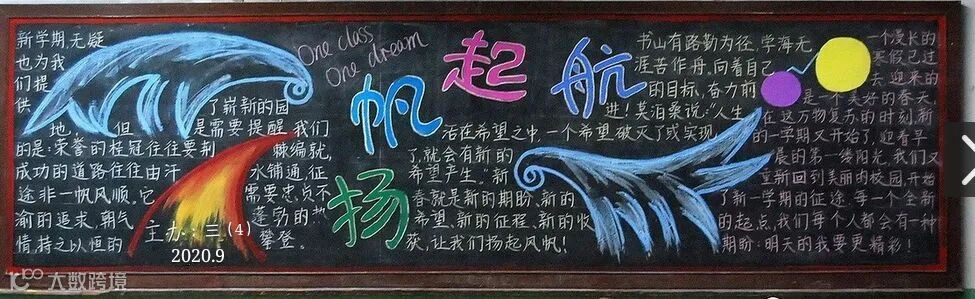 扬帆起航
One class
One dream
新学期,无疑
也为我
们提
供了崭新的园
地,但是需要提醒我们
的是:荣誉的桂冠往往要荆棘编就,
成功的道路往往由汗水铺通,征
途非一帆风顺。它需要忠贞不
渝的追求,朝气蓬勃的热
情,持之以恒的攀登。
主办:三(4)
2020.9
书山有路勤为径,学海无
涯苦作舟。向着自己
的目标,奋力前
进!莫泊桑说:“人生
活在希望之中一个希望破灭了或实现
了,就会有新的
希望产生。”新
春就是新的期盼、新的
希望、新的征程、新的收
获,让我们扬起风帆!
一个漫长的
寒假已过
去,迎来的
是一个美好的春天,
在这万物复苏的时刻,新
的一学期又开始了,迎着早
晨的第一缕阳光,我们又
重新回到美丽的校园,开始
了新一学期的征途,每一个全新
的起点,我们每个人都会有一种
期盼:明天的我要更精彩!
大数跨境